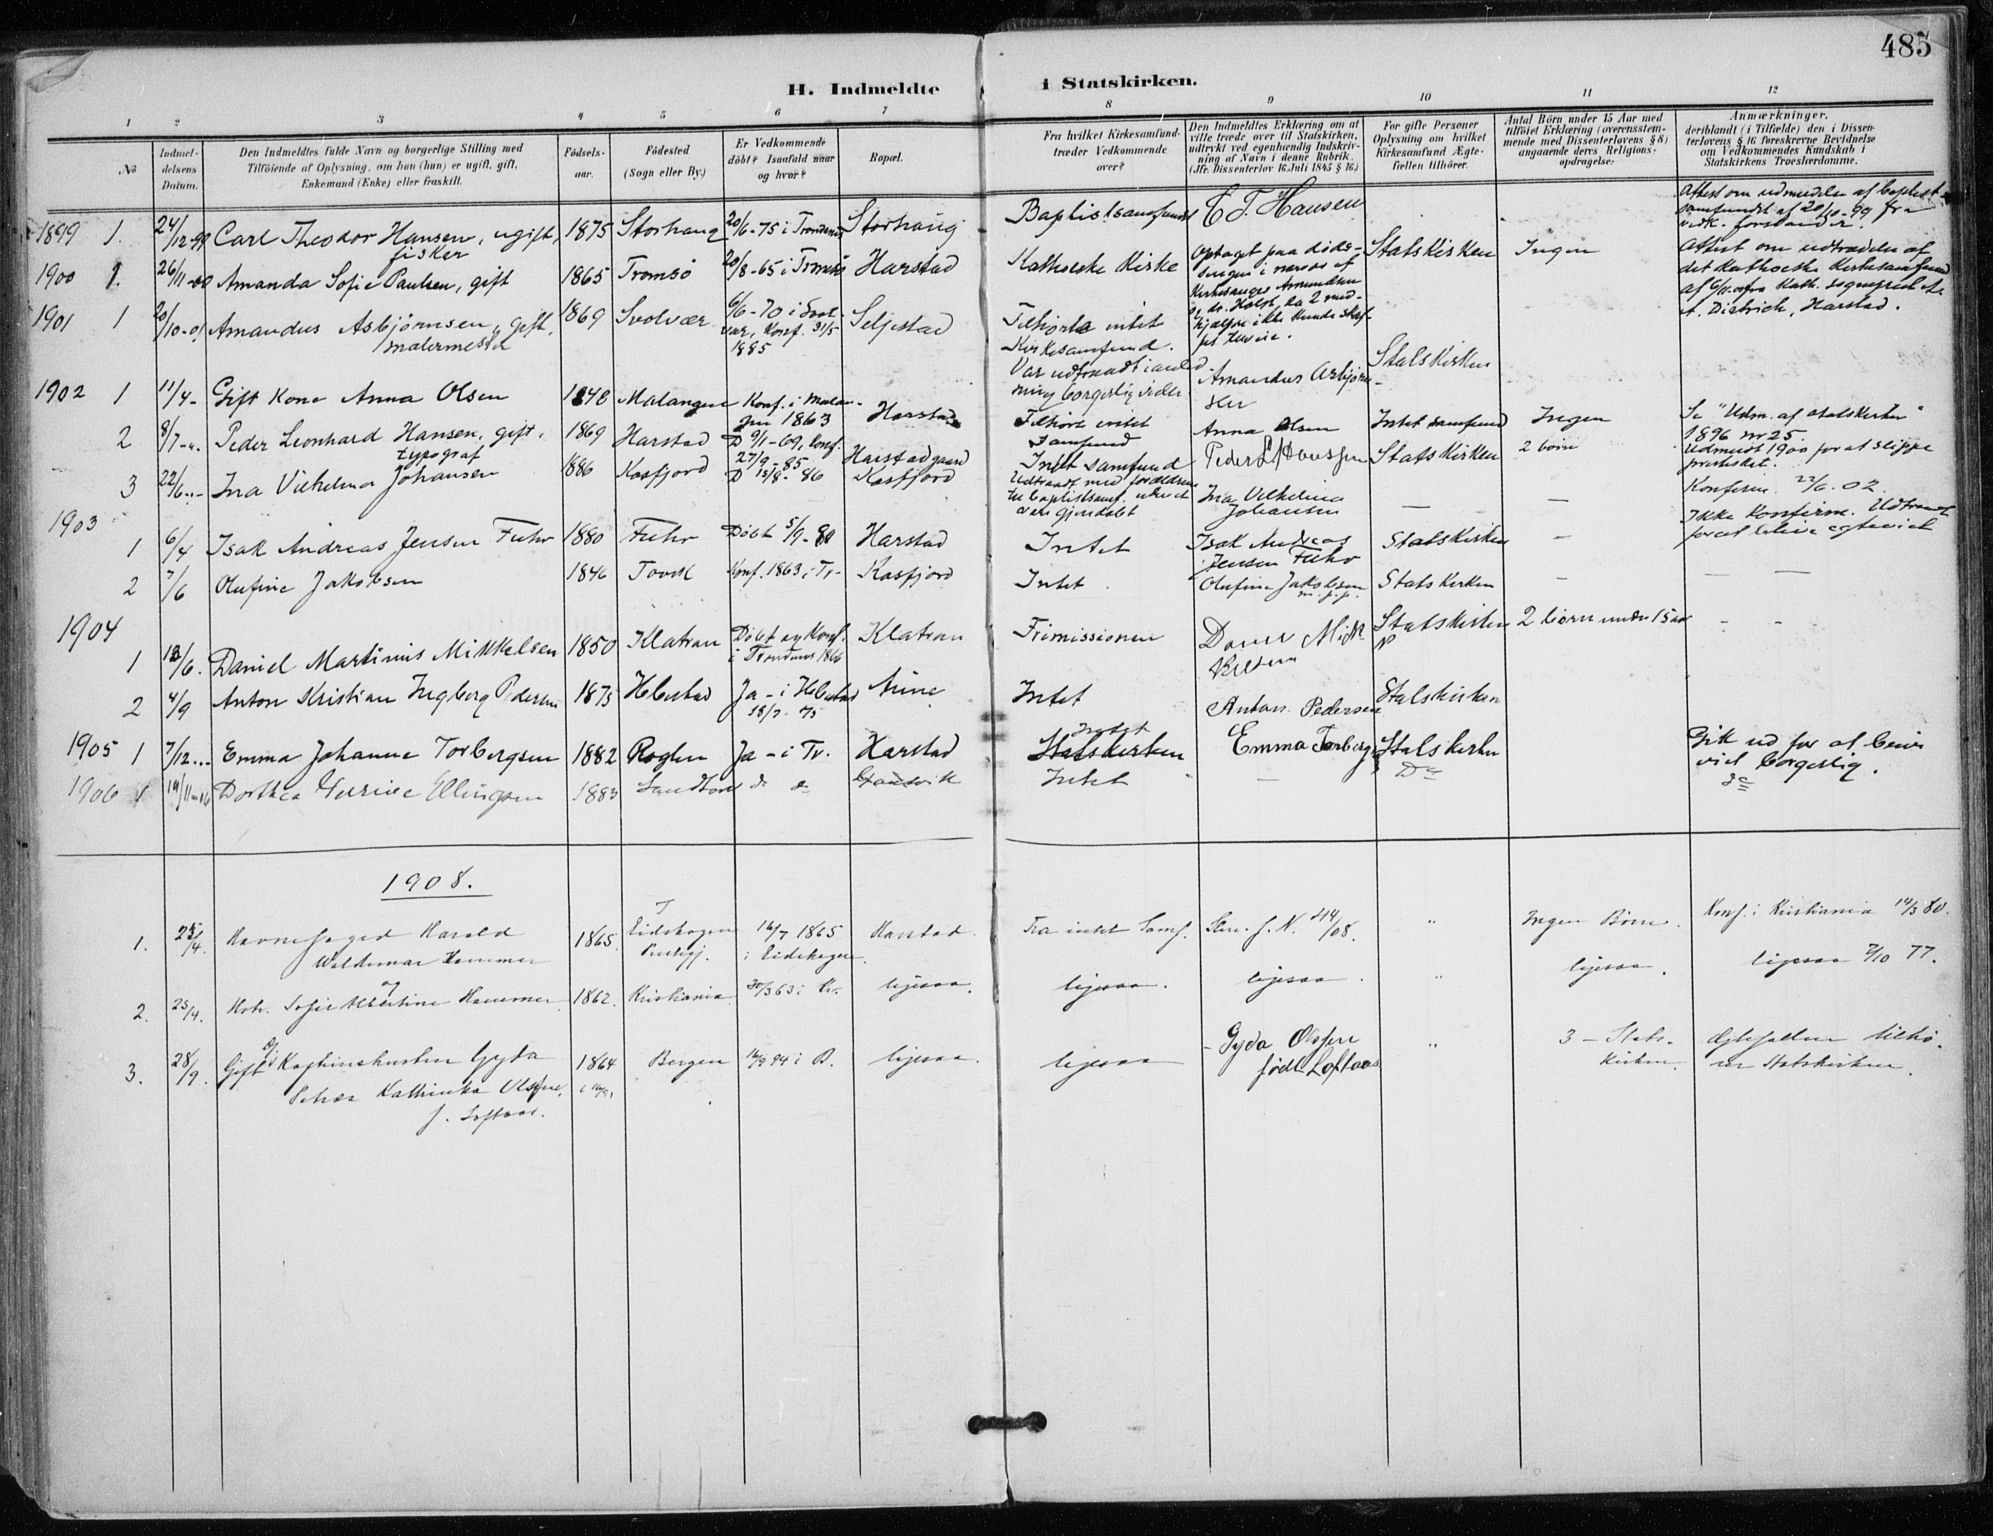 485
H. Indmeldte i Statskirken.
1 2 3 4 5 6 7 8 9 10 11 12
No
Indmel-
delsens
Datum.
Den Indmeldtes fulde Navn og borgerlige Stilling med
Tilföiende af Oplysning, om han (hun) er ugift, gift,
Enkemand (Enke) eller fraskilt.
Födsels-
aar.
Födested
(Sogn eller By.)
Er Vedkommende
döbt? Isaafald naar
og hvor?
Bopæl.
Fra hvilket Kirkesamfund
træder Vedkommende
over?
Den Indmeldtes Erklæring om at
ville træde over til Statskirken,
udtrykt ved egenhændig Indskriv-
ning af Navn i denne Rubrik.
(Jfr. Dissenterlov 16 Juli 1845 § 16.)
For gifte Personer
Oplysning om hvilket
Kirkesamfund Ægte-
fællen tilhörer.
Antal Börn under 15 Aar med
tilföiet Erklæring (overensstem-
mende med Dissenterlovens § 8)
angaaende deres Religions-
opdragelse.
Anmærkninger,
deriblandt (i Tilfælde) den i Dissen-
terlovens § 16 foreskrevne Bevidnelse
om Vedkommendes Kundskab i
Statskirkens Troeslærdomme.
1899 1. 24/12-99 Carl Theodor Hansen, ugift, fisker 1875 Storhaug 20/6-75 i Trondenes Storhaug Baptistsamfundet C T. Hansen
Attest om udmeldelse af Baptist-
samfundet af 20/10-99 fra
vedk. forstander.
1900 1. 26/11-00 Amanda Sofie Paulsen, gift 1865 Tromsö 20/8-65 i Tromsö Harstad Katholske Kirke
Optaget paa döds-
sengen i nærvær af
Kirkesanger Amundsen
og dr. Holst, da 2 med-
hjælpere ikke kunde skaf-
fes tilveie.
Statskirken Ingen
Attest om udtrædelse af
det katholske Kirkesamfund
af 6/11-00 fra kath. sogneprest
Dietrich, Harstad.
1901 1 20/10-01 Amandus Asbjörnsen, gift, malermester 1869 Svolvær 6/6-70 i Svol-
vær, Konf. 31/5
1885
Seljestad
Tilhörte intet
Kirkesamfund.
Var udtraadt i anled-
ning borgerlig vielse
Amandus Asbjörn-
sen
Statskirken
1902 1 11/4- Gift Kone Anna Olsen 1848 Malangen Konf. i Malan-
gen 1863 Harstad Tilhörte intet
Samfund Anna Olsen Intet samfund Ingen
Se "Udm. af statskirken"
1896 nr 25.
2 8/7-" Peder Leonhard Hansen, gift, typograf 1869 Harstad D 9/1-69, Konf.
27/9-85 Harstadgaard Intet samfund Peder L. Hanssen Statskirken 2 börn
Udmeldt 1900 for at slippe
presteskat.
3 22/6"- Ina Vilhelma Johansen 1886 Kasfjord D 15/8-86 Kasfjord
Udtraadt med forældrene
til baptistsamf. uden at
være gjendöbt
Ina Vilhelma
Johansen — — Konferm. 22/6.02
1903
1 6/4 Isak Andreas Jensen Fuhr 1880 Fuhr Döbt 5/9-80 Harstad Intet Isak Andreas
Jensen Fuhr Statskirken —
Ikke konfirm. Udtraadt
for at blive egteviet
2 7/6 Olufine Jakobsen 1846 Tovik Konf. 1863 i Tr- Kasfjord Intet. Olufine Jakobsen
m. p. p. Statskirken — — —
1904
1 12/6. Daniel Martinus Mikkelsen 1850 Klatran Döbt og Konf.
i Trondenes 1866 Klatran Frimissionen Daniel Mik-
kelsen Statskirken 2 börn under 15 aar - -
2 4/9 Anton Kristian Ingberg Pedersen 1875 Ibestad Ja - i Ibestad
18/7-75 Aune Intet Anton Pedersen Statskirken
1905 1 7/12... Emma Johanne Torbergsen 1882 Roglen Ja - i Tr. Harstad Intet
Statskirken Emma Torbergs Statskirken
Gik ud for at bleve
viet borgerlig.
1906 1 19/11-06 Dorthea Verine Ellingsen 1883 Sandtorv do do Gansvik Intet — Do do
1908.
1. 23/4. Havnefoged Harald
Waldemar Hammer 1865. Eidskogen
Prestgj. 16/7 1865
i Eidskogen. Harstad. Fra intet Samf. Skr. f. N. 4/4/08. " Ingen Börn. Konf. i Kristiania 14/3 80.
2. 23/4. og
Hstr. Sofie Albertine Hammer 1862. Kristiania 30/3 63 i Kr. ligesaa. ligesaa. ligesaa. " ligesaa. ligesaa 7/10 77.
3. 28/9. Gift Kapteinshustru Gyda
Petrea Kathinka Olssøn,
f. Loftaas. 1864 Bergen 16/9 94 i B. ligesaa. ligesaa - Gyda Olssøn
född Loftaas " 3 - Stats-
kirken. Ægtefællen tilhö-
rer Statskirken.